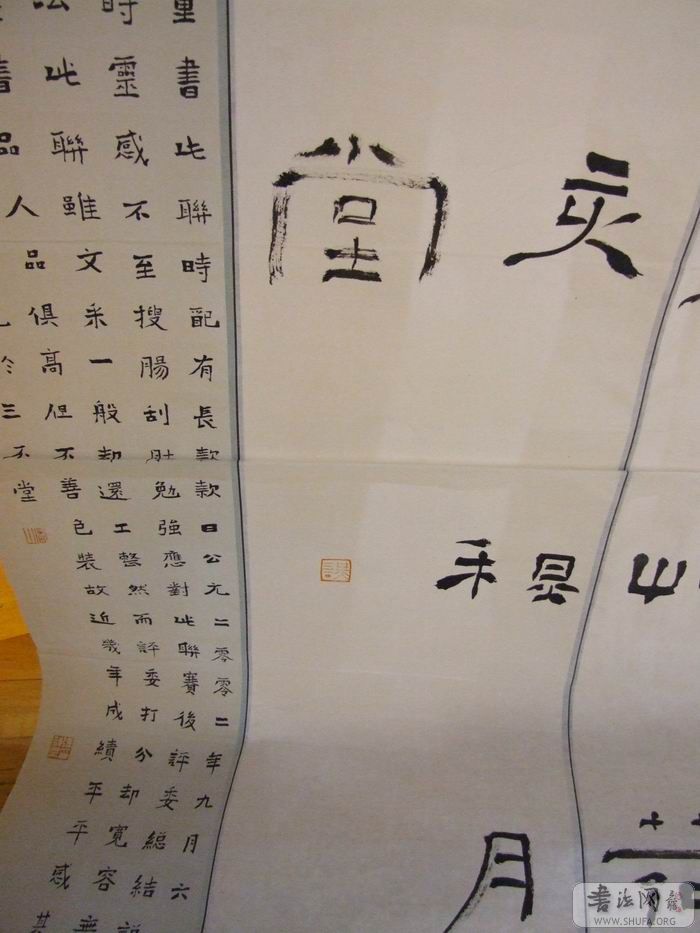 亥
月
堂
重書此聯時配有長款款曰公元二零零二年九月六
時靈感不至搜腸刮肚勉強應對此聯賽後評委總結
此聯雖文采一般却還工整然而評委打分却寬容
書品人品俱高但不善色裝故近幾年成績平平感其
三不堂
书法网
WWW.SHUFA.ORG